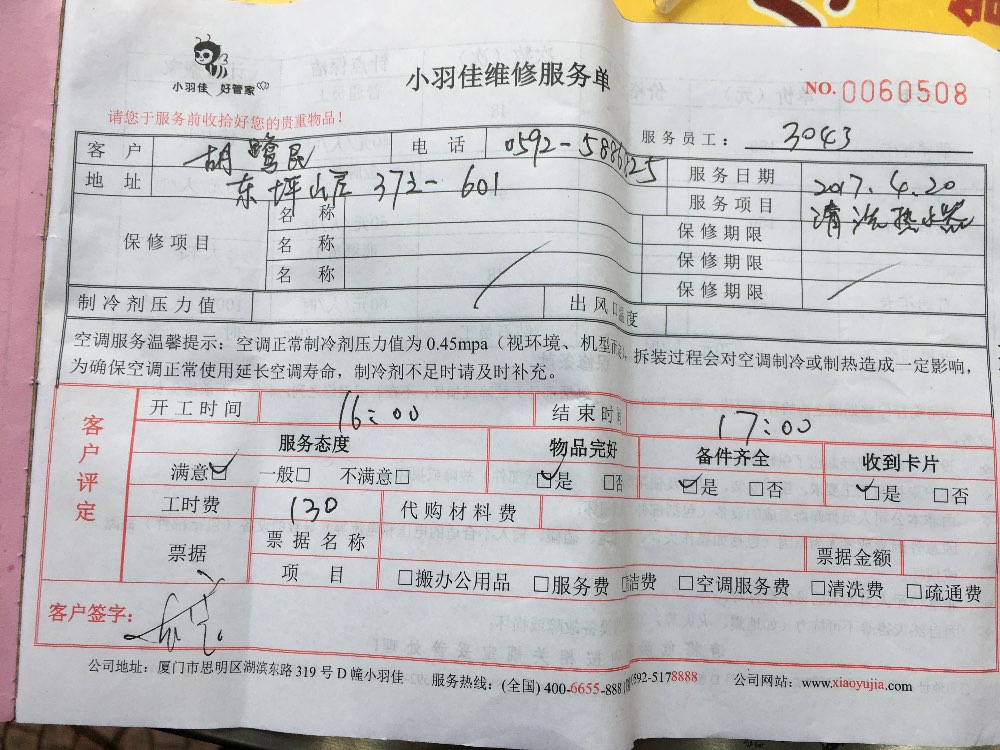 小羽佳 好管家
小羽佳维修服务单
NO. 0060508
请您于服务前收拾好您的贵重物品!
服务员工: 3043
客户 胡鹭民 电话 0592-5886125
地址 东坪山庄 37之-601
服务日期 2017.4.20
服务项目 清洗热水器
保修项目
名称 保修期限
名称 保修期限
名称 保修期限
制冷剂压力值 出风口温度
空调服务温馨提示:空调正常制冷剂压力值为 0.45mpa(视环境、机型而定),拆装过程会对空调制冷或制热造成一定影响,
为确保空调正常使用延长空调寿命,制冷剂不足时请及时补充。
客户评定
开工时间 16:00 结束时间 17:00
服务态度 物品完好 备件齐全 收到卡片
满意☑ 一般□ 不满意□ ☑是 □否 ☑是 □否 ☑是 □否
工时费 130 代购材料费
票据 票据名称 票据金额
项目 □搬办公用品 □服务费 洁费 □空调服务费 □清洗费 □疏通费
客户签字:
公司地址:厦门市思明区湖滨东路 319 号 D 幢小羽佳 服务热线:(全国) 400-6655-888 592-5178888 公司网站:www.xiaoyujia.com